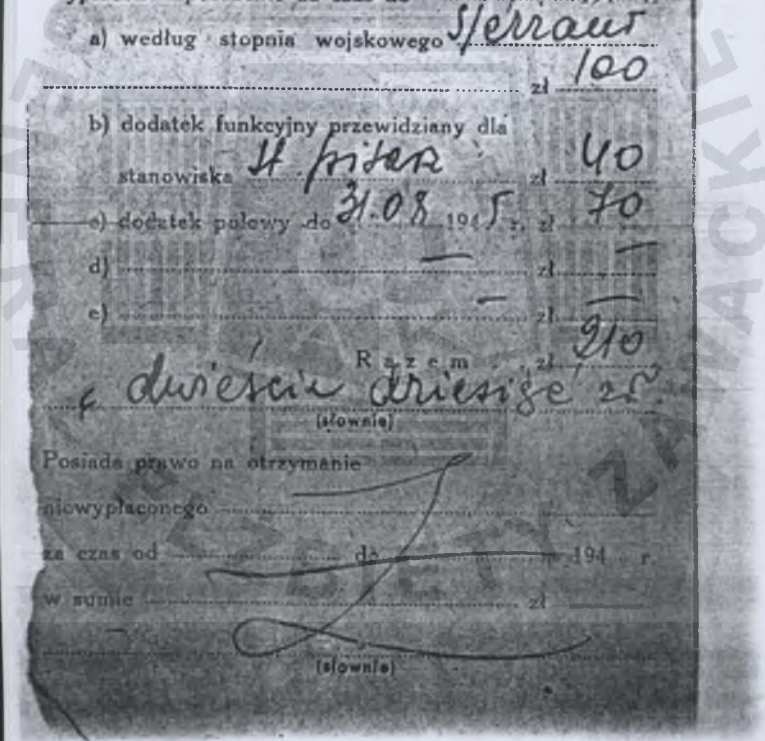 a) według stopnia wojskowego sierżant
zł 100
b) dodatek funkcyjny przewidziany dla
stanowiska st pisarz zł 40
c) dodatek polowy do 31.08 1945 r. zł 70
d) — zł —
e) — zł —
Razem zł 210
dwieście dziesięć zł.
(słownie)
Posiada prawo na otrzymanie
niewypłaconego
za czas od do 194 r.
w sumie zł
(słownie)
FUNDACJA
KOBIETY
ZAWACKIEJ